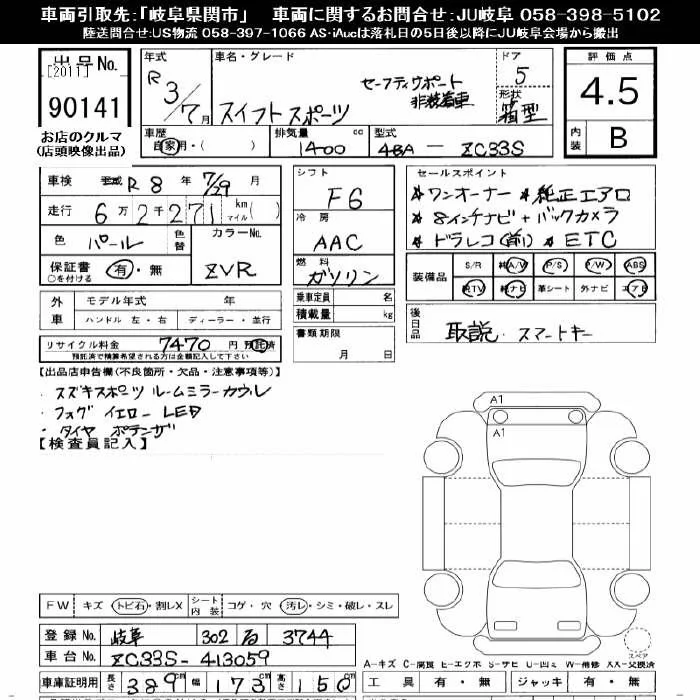 車両引取先:「岐阜県関市」 車両に関するお問合せ:JU岐阜 058-398-5102
陸送問合せ:US物流 058-397-1066 AS・iAucは落札日の5日後以降にJU岐阜会場から搬出
出品No. [2011]
90141
お店のクルマ
(店頭映像出品)
年式 R 3/7月
車名・グレード スイフトスポーツ
セーフティサポート
非装着車
ドア 5
形状 箱型
評価点 4.5
内装 B
車歴 自家用・( )
排気量 1400 cc
型式 4BA - ZC33S
車検 平成 R8年 7/29月
走行 6万2千271 km マイル( )
色 パール
色替
カラーNo. ZVR
保証書 有・無
○を付ける
シフト F6
冷房 AAC
燃料 ガソリン
乗車定員 名
積載量 kg
書類期限
月 日
セールスポイント
★ワンオーナー ★純正エアロ
★8インチナビ+バックカメラ
★ドラレコ(前) ★ETC
装備品 S/R 純A/W P/S P/W ABS
純TV 純ナビ 革シート 外ナビ エアB
外車 モデル年式 年
ハンドル 左・右 ディーラー・並行
リサイクル料金 7470円 預託済
預託済で精算希望される方は金額記入して下さい
後日品 取説・スマートキー
【出品店申告欄(不良箇所・欠品・注意事項等)】
・スズキスポーツ ルームミラーカウル
・フォグ イエロー LED
・タイヤ ポテンザ
【検査員記入】
A1
A1
FW キズ・トビ石・割レX シート内装 コゲ・穴・汚レ・シミ・破レ・スレ
登録No. 岐阜 302 る 3744
車台No. ZC33S-413059
車庫証明用 長さ 389cm 幅 173cm 高さ 150cm
スペア
A-キズ C-腐食 E-エクボ S-サビ U-凹ミ W-補修 XX-交換済
工具 有・無 ジャッキ 有・無